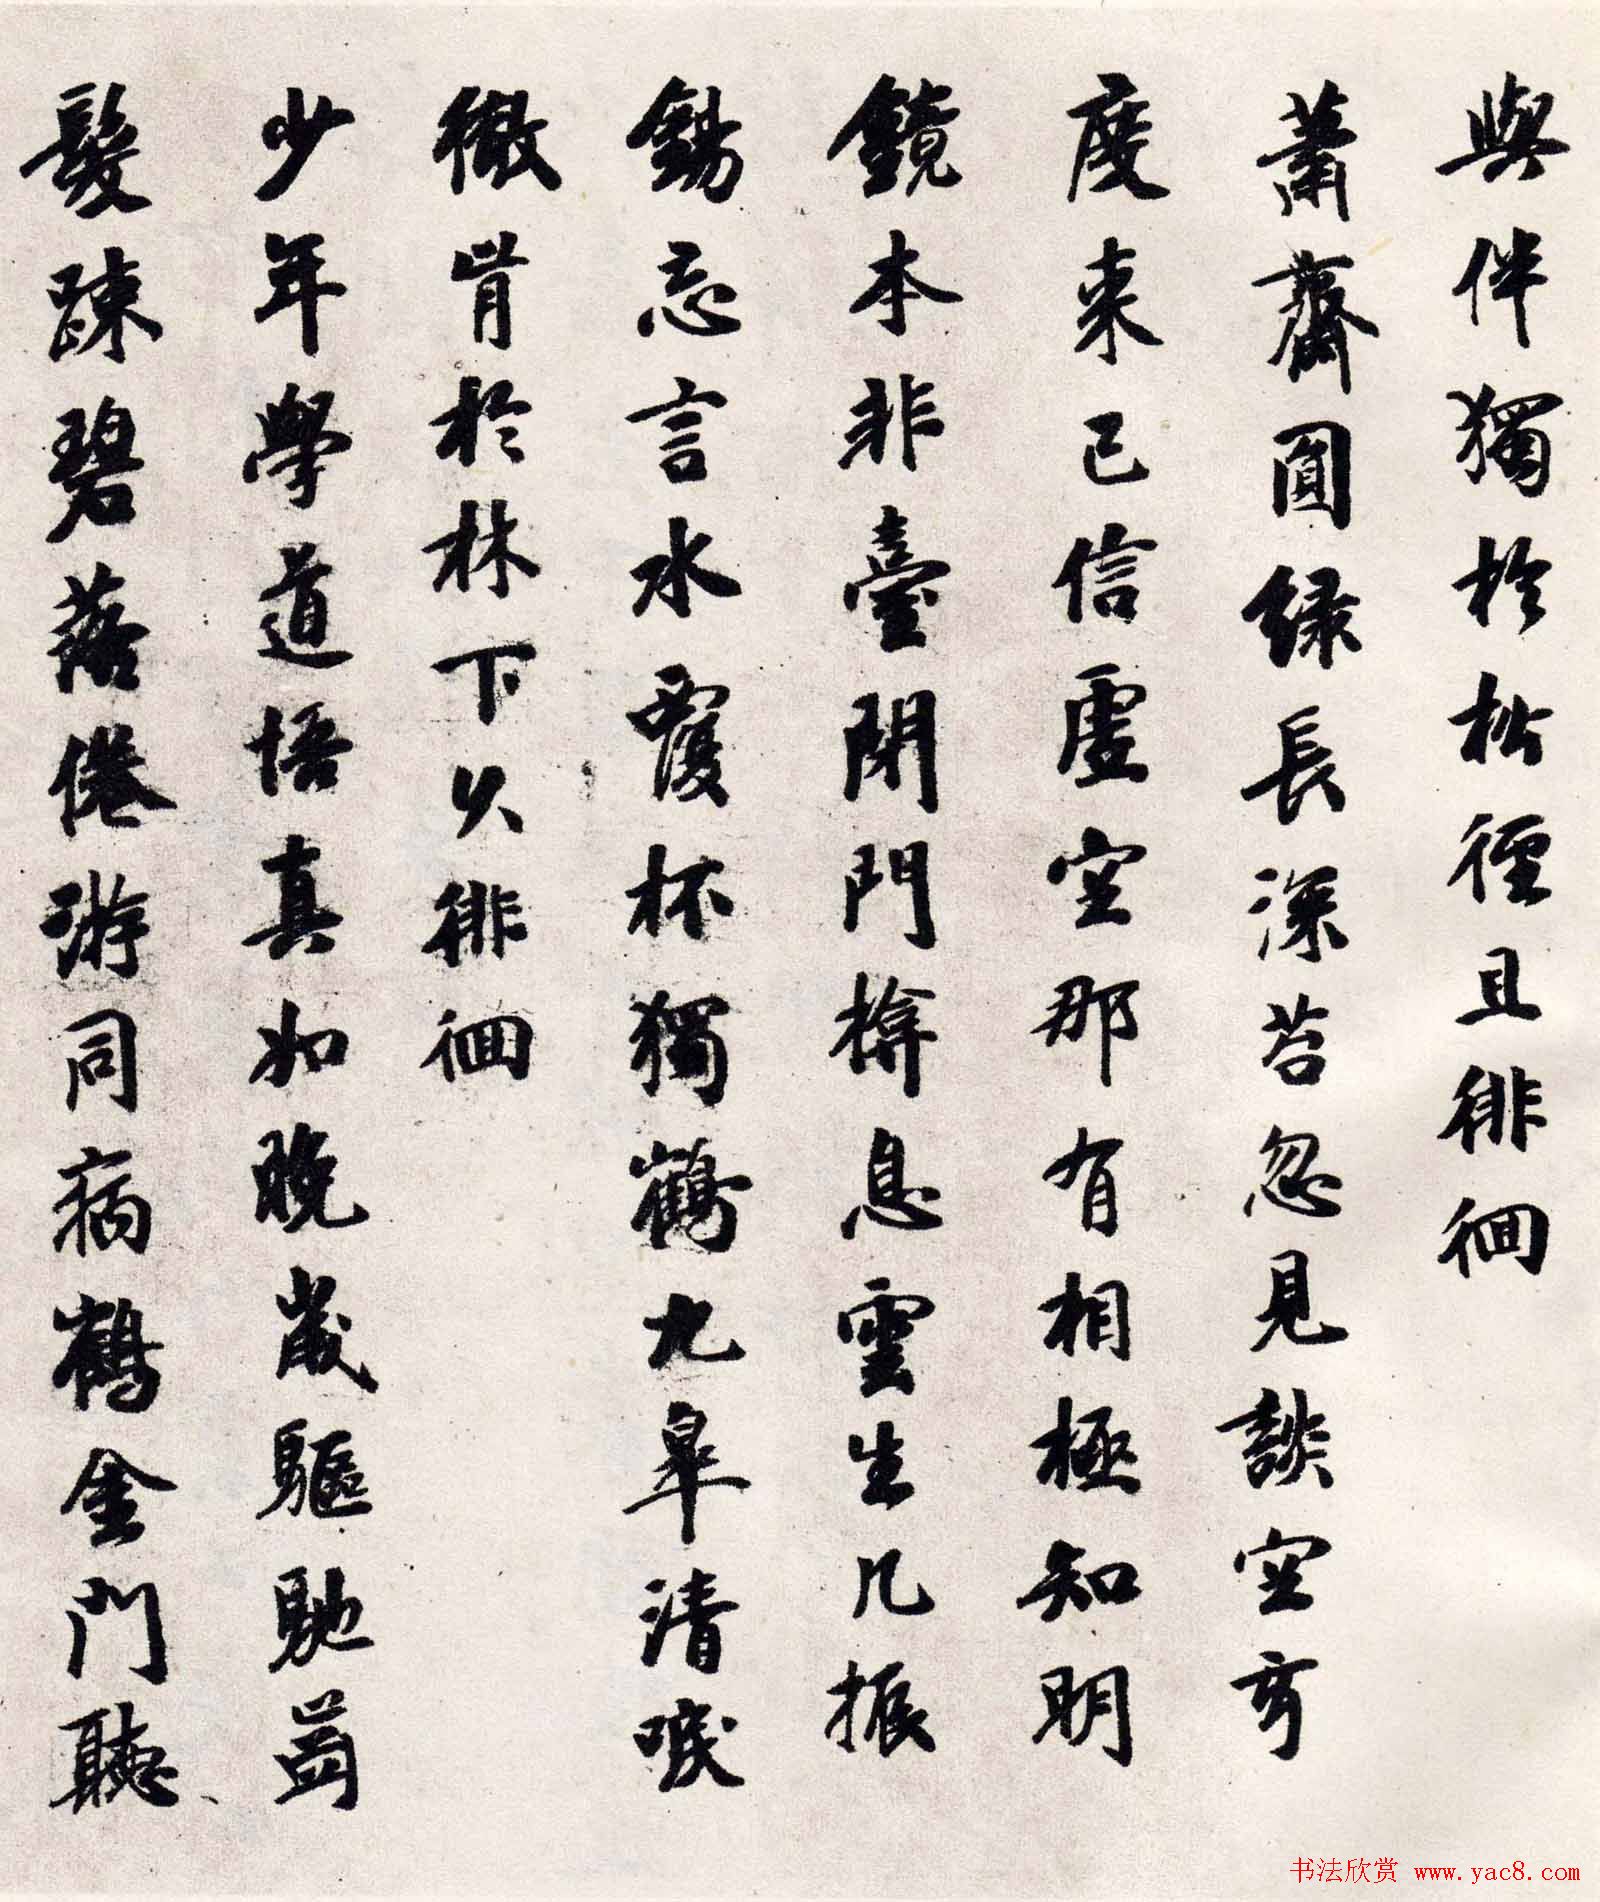 與伴獨於松徑且徘徊
蕭齋圓綠長深苔忽見談空亨
度来已信虛空那有相極知明
鏡本非臺閉門揜息雲生几振
錫忘言水覆杯獨鶴九皋清唳
徹肯於林下久徘徊
少年學道悟真如晚歲驅馳齒
髮踈碧落倦游同病鶴金門聽
书法欣赏 www.yac8.com